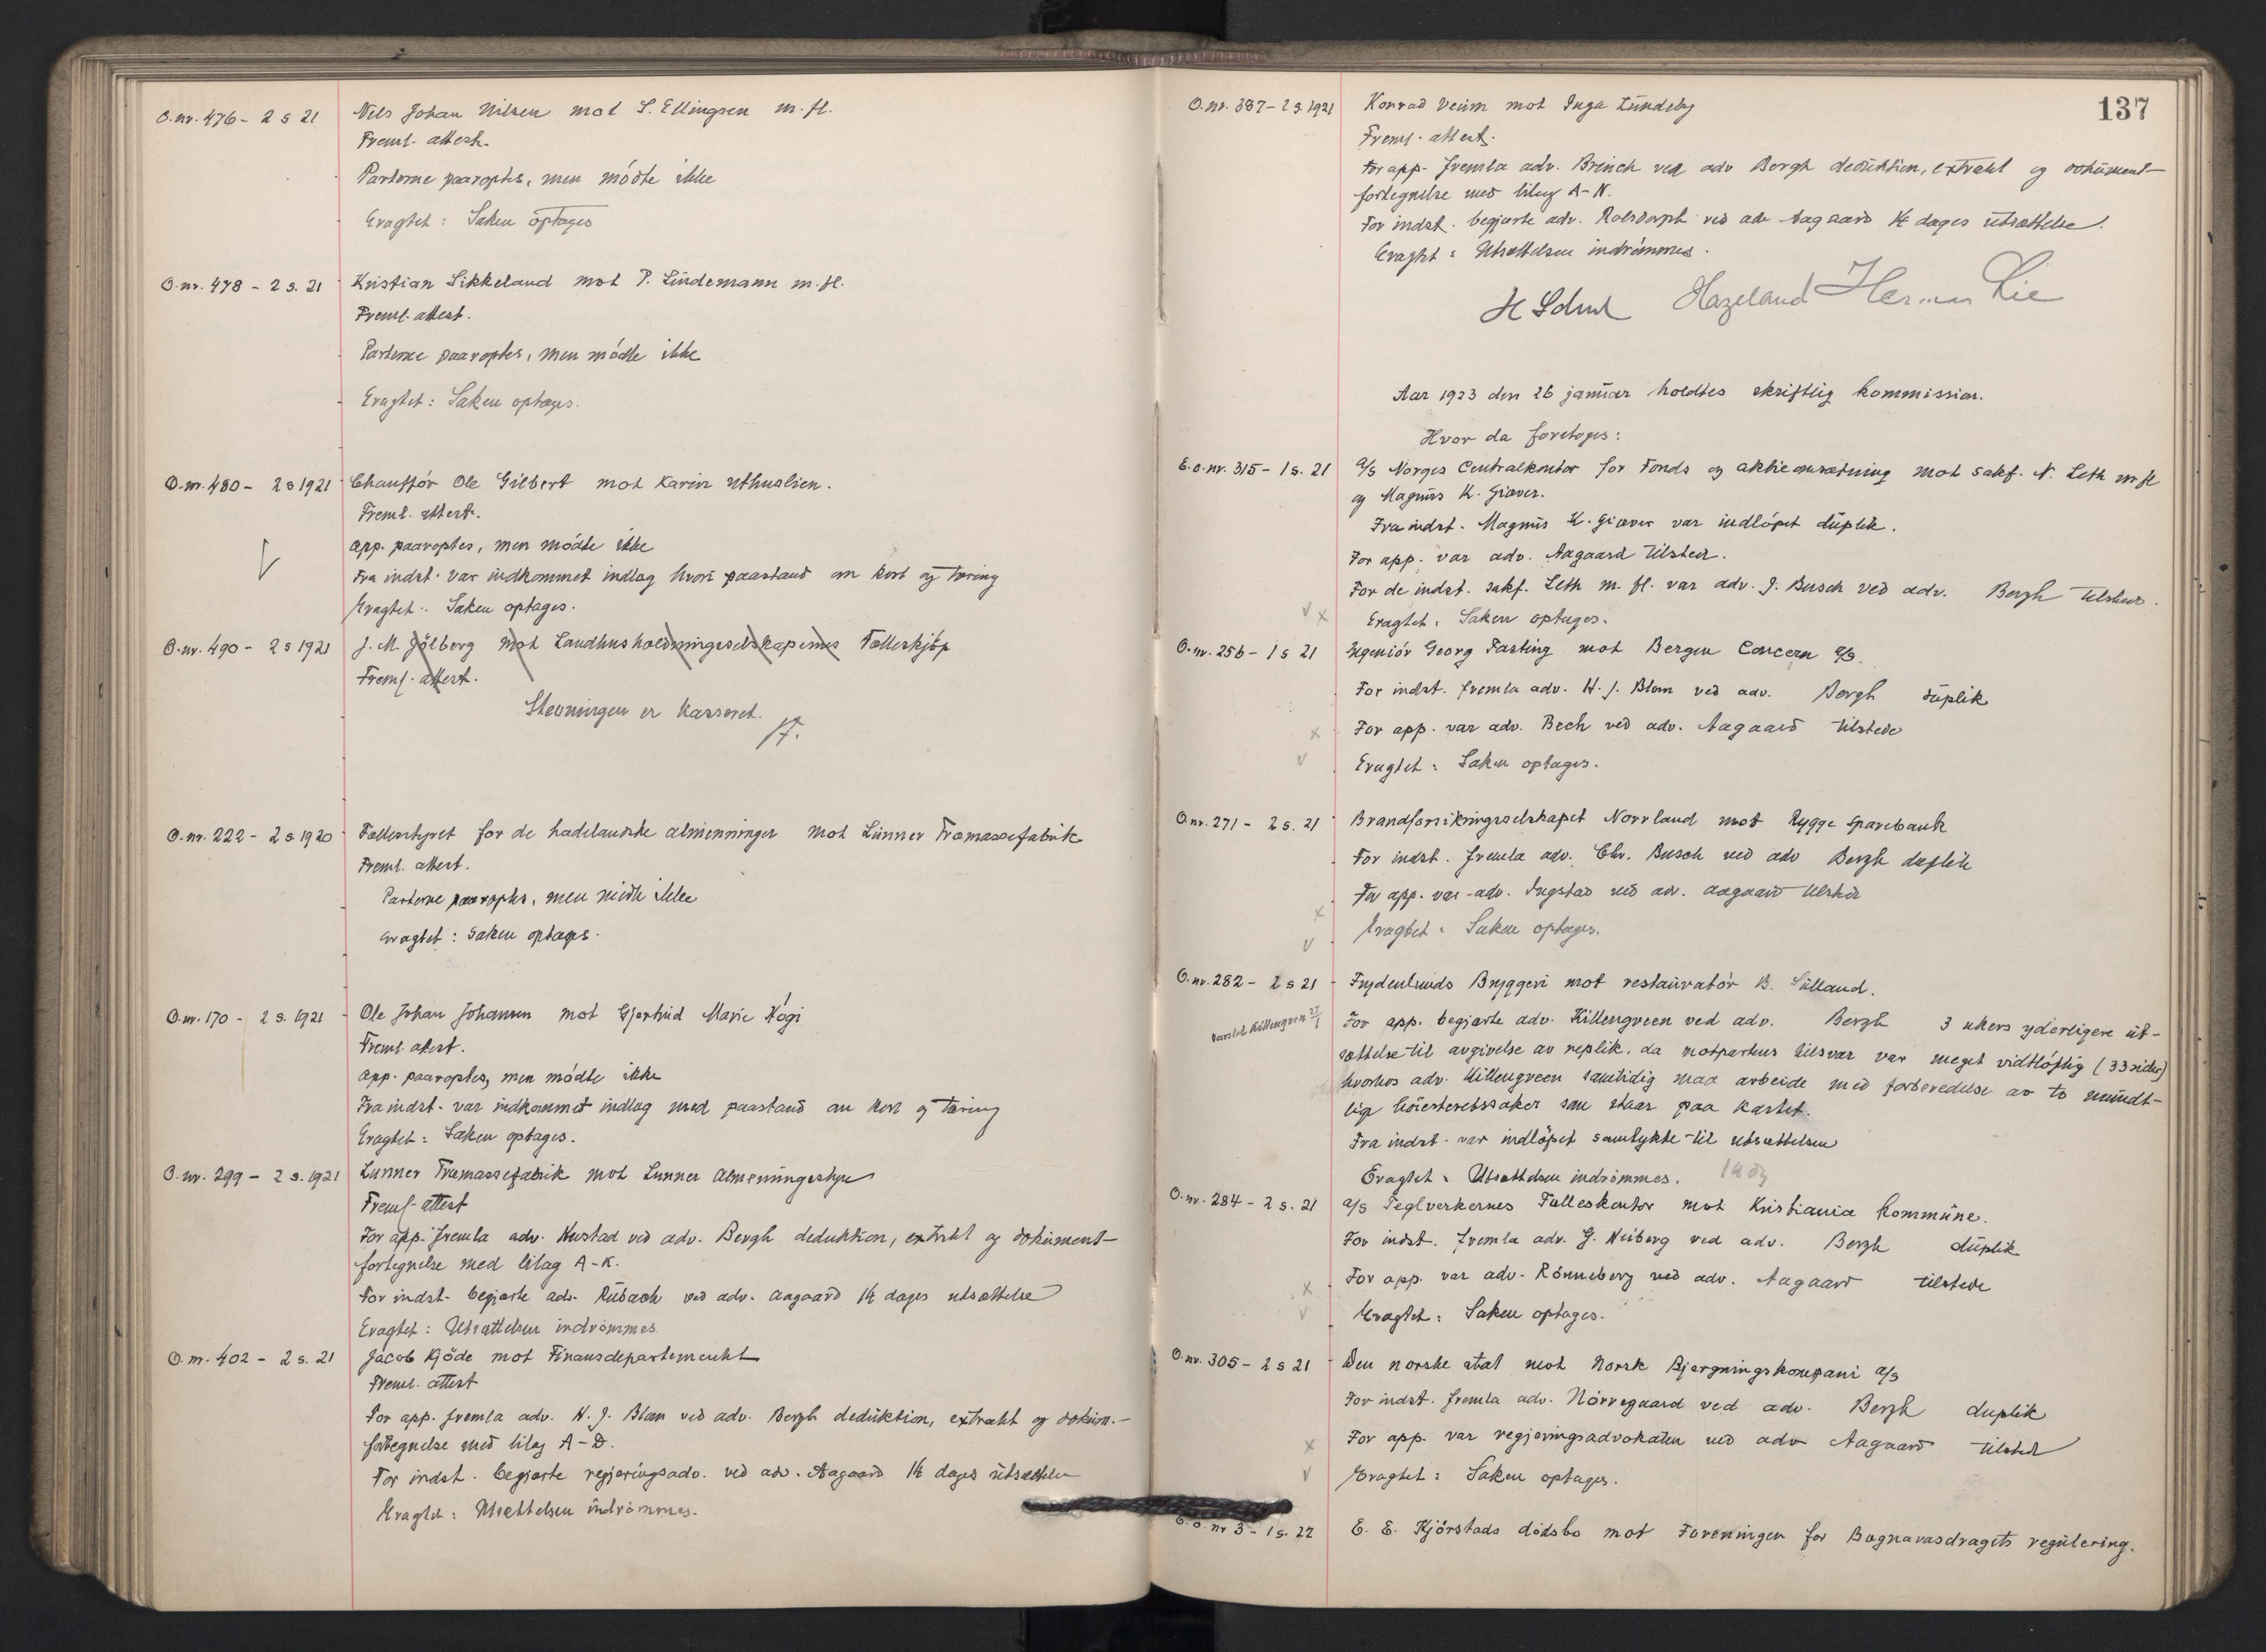 O.nr. 476 - 2 s 21 Nils Johan Nilsen mot S. Ellingsen m. fl.
Freml. attest.
Parterne paaroptes, men mödte ikke
Eragtet: Saken optages
O.nr. 478 - 2 s. 21 Kristian Sikkeland mot P. Lindemann m. fl.
Freml. attest.
Parterne paaroptes, men mödte ikke
Eragtet: Saken optages.
O.nr. 480 - 2 s 1921 Chauffør Ole Gilbert mot Karin Uthuslien.
Freml. attest.
App. paaroptes, men mödte ikke
Fra indst. var indkommet indlag hvori paastand om kost og tæring
Eragtet: Saken optages.
O.nr. 490 - 2 s 1921 J. M. Jölberg mot Landhusholdningsselskapernes Fælleskjøp
Freml. attest.
Stevningen er kasseret.
O.nr. 222 - 2 s 1920 Fællesstyret for de hadelandske almenninger mot Lunner Træmassefabrik
Freml. attest.
Parterne paaroptes, men mödte ikke
Eragtet: Saken optages.
O.nr. 170 - 2 s. 1921 Ole Johan Johansen mot Gjertrud Marie Kogi
Freml. attest.
App. paaroptes, men mödte ikke
Fra indst. var indkommet indlag med paastand om kost og tæring
Eragtet: Saken optages.
O.nr. 299 - 2 s. 1921 Lunner Træmassefabrik mot Lunner Almenningsstyre
Freml. attest
For app. fremla adv. Kustad ved adv. Bergh deduktion, extrakt og dokument-
fortegnelse med bilag A-K.
For indst. begjærte adv. Rubach ved adv. Aagaard 14 dages utsættelse
Eragtet: Utsættelsen indrömmes
O.nr. 402 - 2 s. 21 Jacob Kjöde mot Finansdepartementet
Freml. attest
For app. fremla adv. H. J. Blom ved adv. Bergh deduktion, extrakt og dokum.-
fortegnelse med bilag A-D.
For indst. begjærte regjeringsadv. ved adv. Aagaard 14 dages utsættelse
Eragtet: Utsættelsen indrömmes.
137
O.nr. 387 - 2 s. 1921 Konrad Veum mot Inga Lundeby
Freml. attest.
For app. fremla adv. Brinch ved adv Bergh deduktion, extrakt og dokument-
fortegnelse med bilag A-N.
For indst. begjærte adv. Rolsdorph ved adv Aagaard 14 dages utsættelse.
Eragtet: Utsættelsen indrömmes.
Hazeland Herman Lie
Aar 1923 den 26 januar holdtes skriftlig kommission.
Hvor da foretoges:
E.o.nr. 315 - 1 s. 21 A/S Norges Centralkontor for Fonds og aktieomsætning mot sakf. N. Leth m fl
og Magnus K. Giæver.
Fra indst. Magnus K. Giæver var indlöpet duplik.
For app. var adv. Aagaard tilstede.
For de indst. sakf. Leth m. fl. var adv. J. Busch ved adv. Bergh tilstede.
Eragtet: Saken optages.
O.nr. 256 - 1 s 21 Ingeniör Georg Fasting mot Bergen Concern A/S.
For indst. fremla adv. H. J. Blom ved adv. Bergh duplik
For app. var adv. Bech ved adv. Aagaard tilstede
Eragtet: Saken optages.
O.nr. 271 - 2 s. 21 Brandforsikringsselskapet Norrland mot Rygge Sparebank
For indst. fremla adv. Chr. Busch ved adv Bergh duplik
For app. var adv. Ingstad ved adv. Aagaard tilstede
Eragtet: Saken optages.
O.nr. 282 - 2 s 21 Frydenlunds Bryggeri mot restauratör B. Sülland.
varslet Killengreen 27/1
For app. begjærte adv. Killengreen ved adv. Bergh 3 ukers yderligere ut-
sættelse til avgivelse av replik, da motpartens tilsvar var meget vidtlöftig (33 sider)
hvorhos adv. Killengreen samtidig maa arbeide med forberedelse av to mundt-
lige höiesteretssaker som staar paa kartet.
Fra indst. var indlöpet samtykke til utsættelsen
Eragtet: Utsættelsen indrömmes.
O.nr. 284 - 2 s. 21 A/S Teglverkernes Fælleskontor mot Kristiania kommune.
For indst. fremla adv. G. Heiberg ved adv. Bergh duplik
For app. var adv. Rönneberg ved adv. Aagaard tilstede
Eragtet: Saken optages.
O.nr. 305 - 2 s 21 Den norske stat mot Norsk Bjergningskompani A/S
For indst. fremla adv. Nörregaard ved adv. Bergh duplik
For app. var regjeringsadvokaten ved adv Aagaard tilstede
Eragtet: Saken optages.
E.o.nr 3 - 1 s. 22 E. E. Kjörstads dödsbo mot Foreningen for Bægnavasdragets regulering.